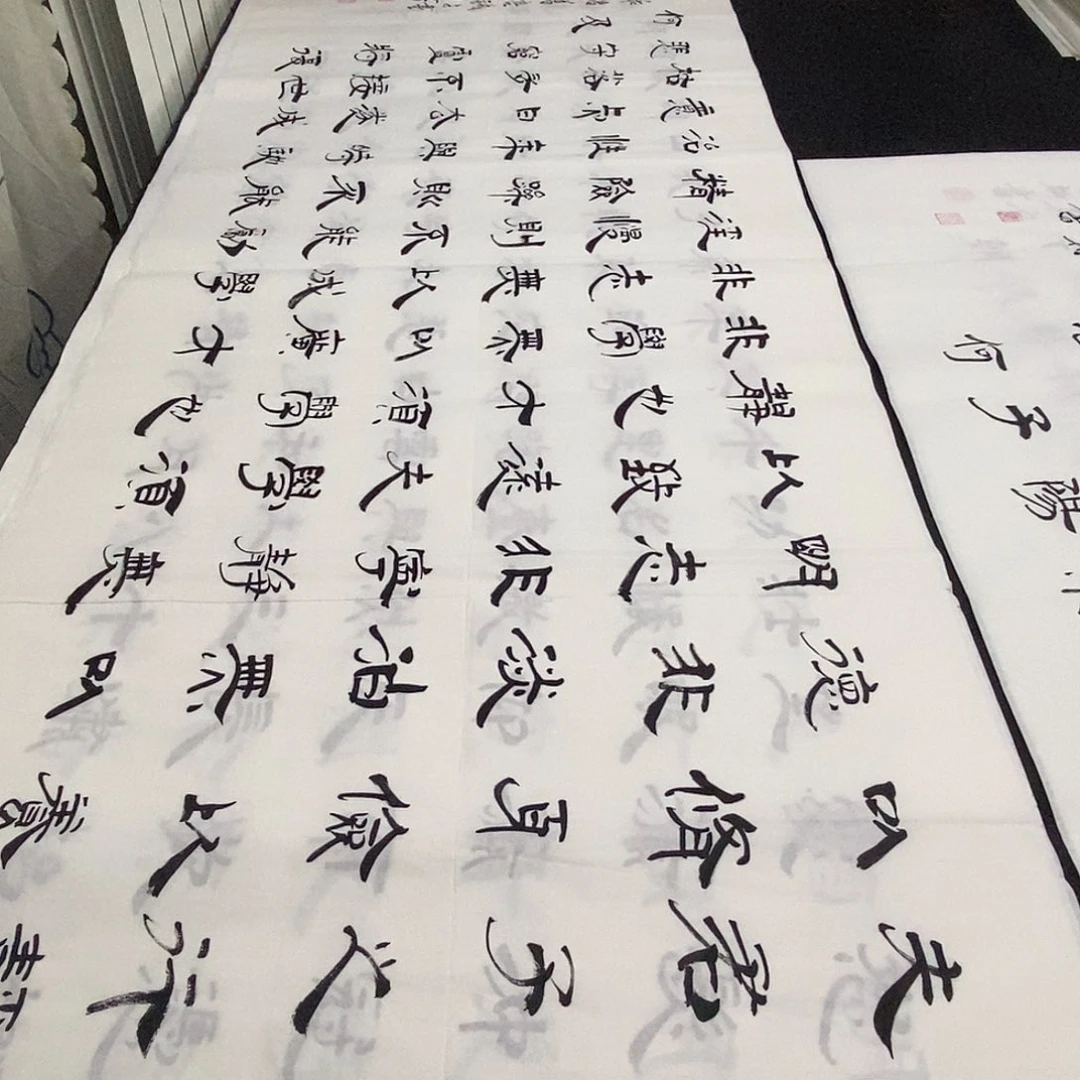 夫君子之行靜
以修身儉以養
德非澹泊無以
明志非寧靜無
以致遠夫學須
靜也才須學也
非學無以廣才
非志無以成學
淫慢則不能勵
精險躁則不能
治性年與時馳
意与日去遂成
枯落多不接世
悲守窮廬將復
何及
何子陽